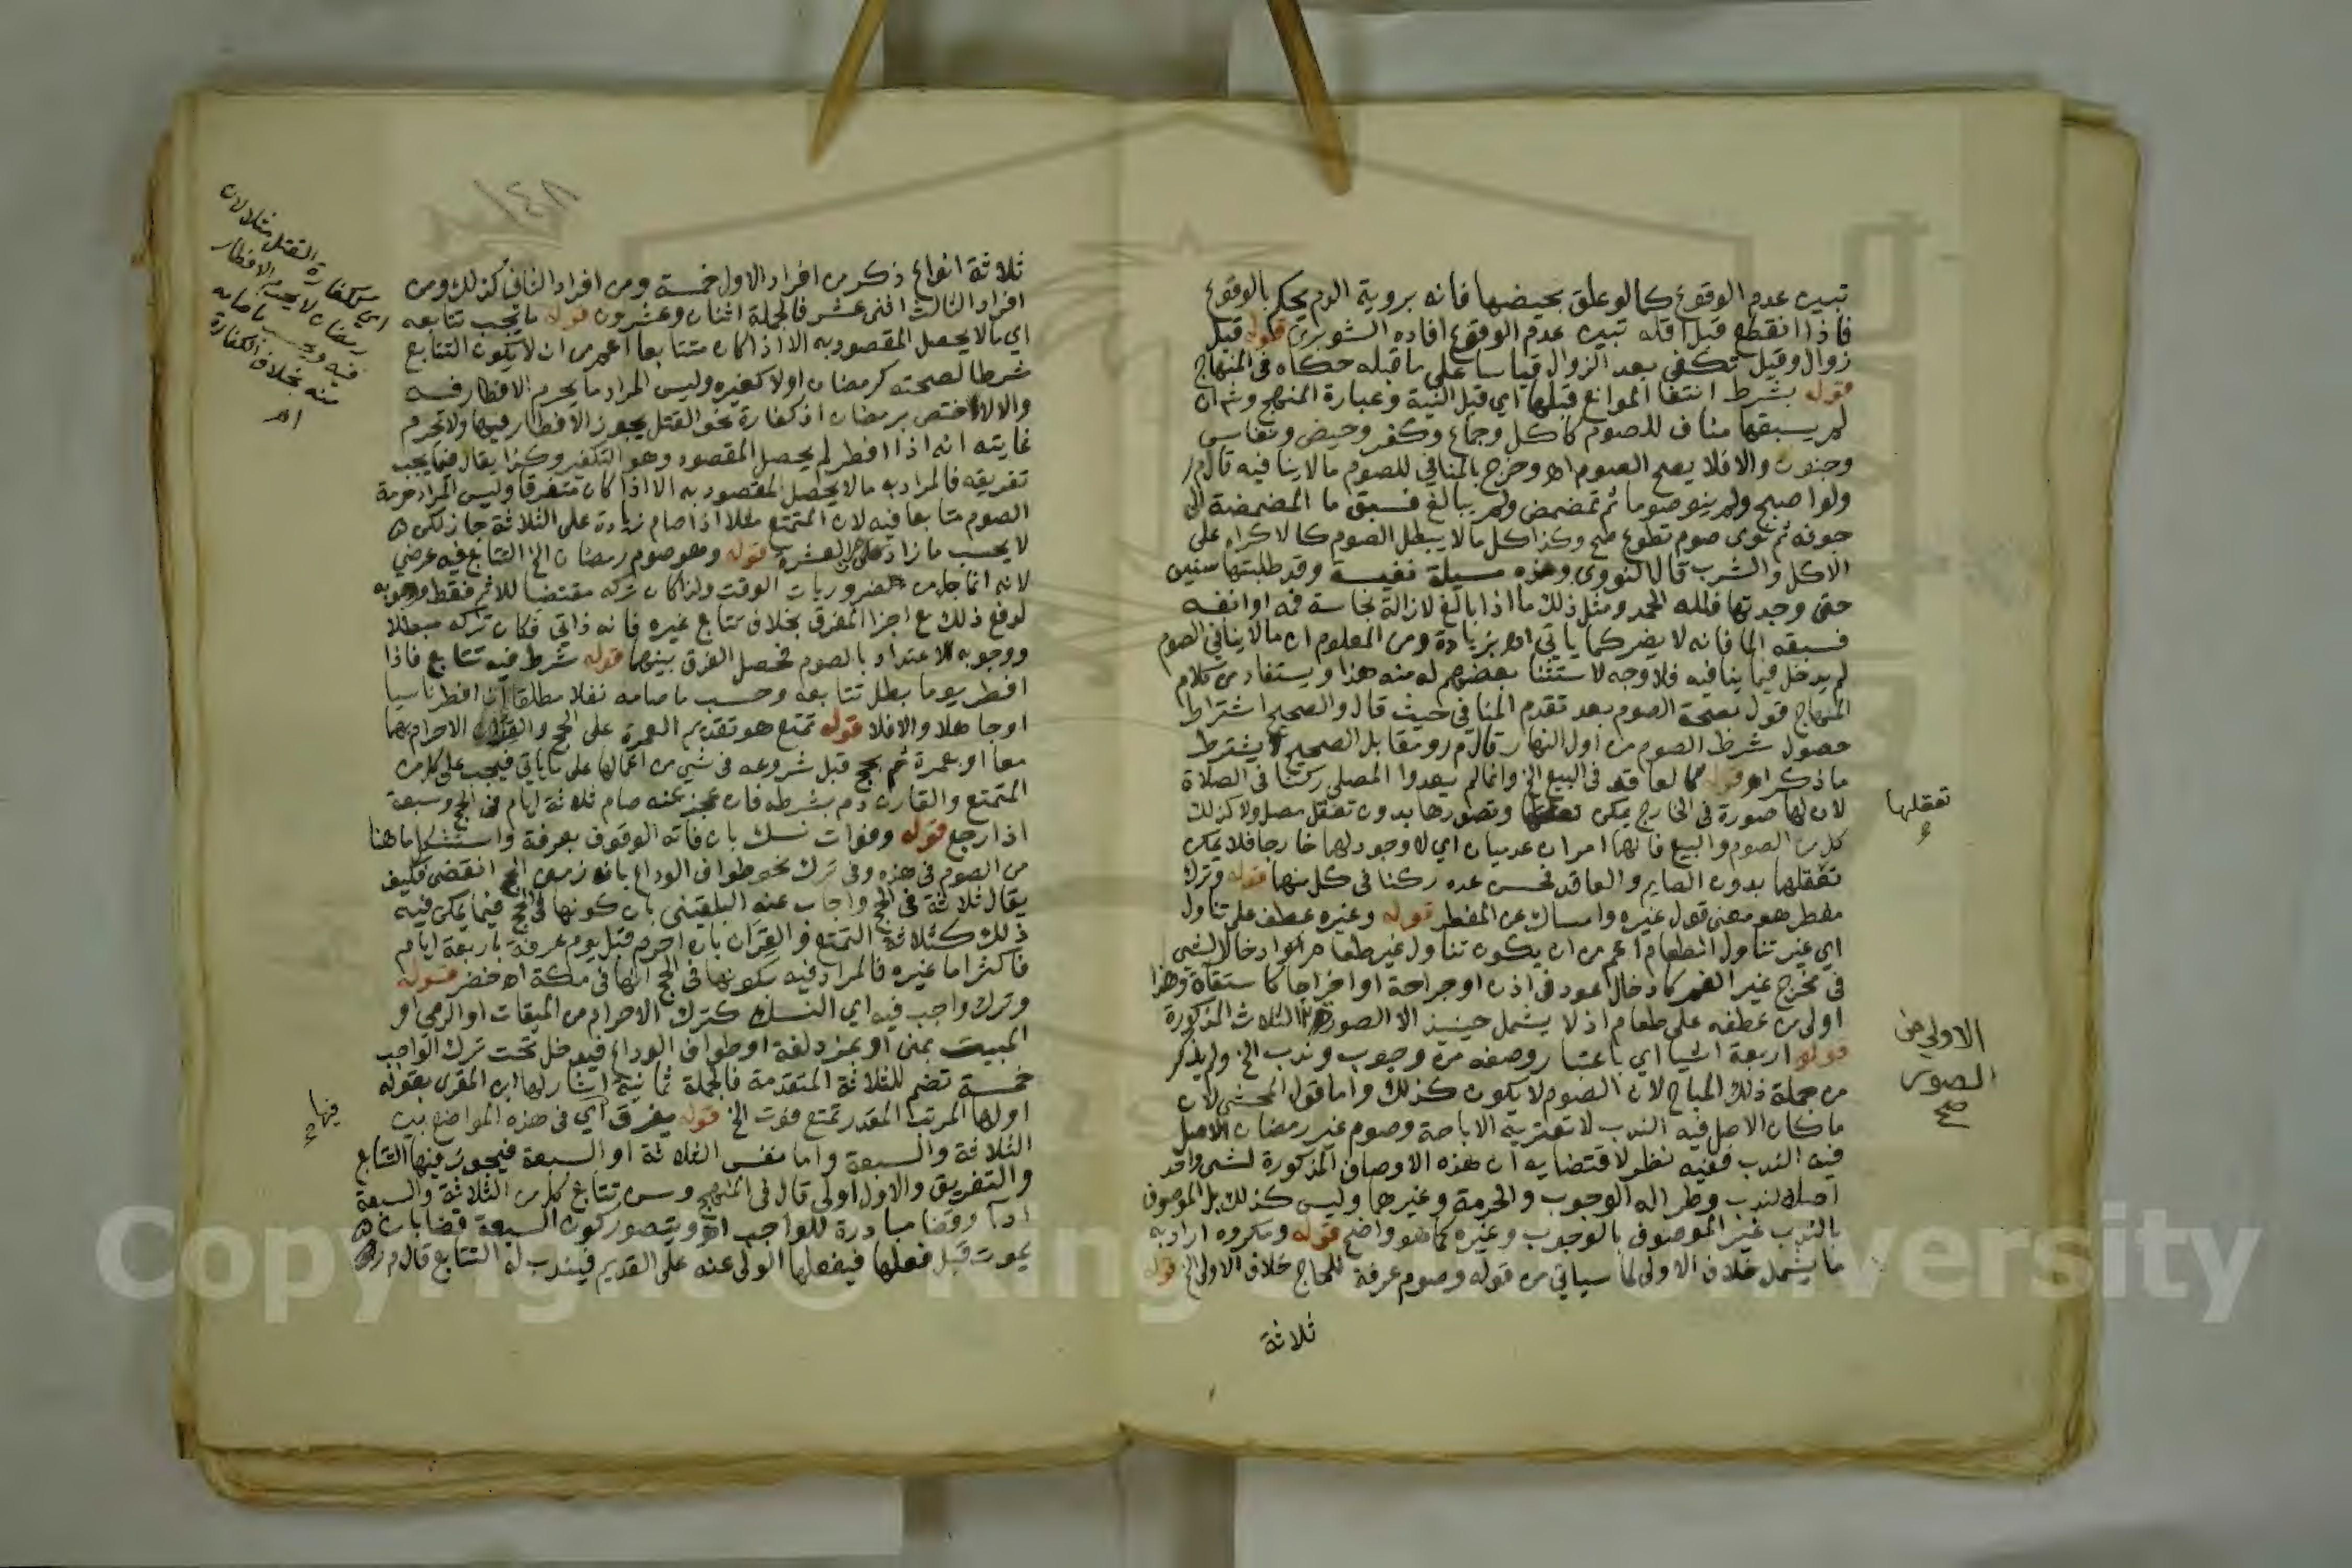 تبين عدم الوقوع كما لو علق بحيضها فانه بروية الدم يحكم بالوقوع
فاذا انقطع قبل اقله تبين عدم الوقوع افاده الشوبري قوله قبل
زوال وقيل تكفي بعد الزوال قياسا على ما قبله حكاه في المنهاج
قوله بشرط انتفا الموانع قبلها اي قبل النية وعبارة المنهج وشم ان
لم يسبقها مناف للصوم كاكل وجماع وكفر وحيض ونفاس
وجنون والا فلا يصح الصوم اه وخرج بالمنافي للصوم مالا ينافيه قال م ر
ولو اصبح ولم ينو صوما ثم تمضمض ولم يبالغ فسبق ما المضمضة الى
جوفه ثم نوى صوم تطوع صح وكذا كل مالا يبطل الصوم كالاكراه على
الاكل والشرب قال النووي وهذه مسيلة نفيسة وقد طلبتها سنين
حتى وجدتها فلله الحمد ومثل ذلك ما اذا بالغ لازالة نجاسة فمه او انفه
فسبقه الما فانه لا يضر كما ياتي اه بزيادة ومن المعلوم ان مالا ينافي الصوم
لم يدخل فيما ينافيه فلا وجه لاستثنا بعضهم له منه هذا ويستفاد من كلام
المنهاج قول بصحة الصوم بعد تقدم المنافي حيث قال والصحيح اشتراط
حصول شرط الصوم من اول النهار قال م ر ومقابل الصحيح لا يشترط
ما ذكر اه قوله كالعاقد في البيع الخ وانما لم يعدوا المصلي ركنا في الصلاة
لان لها صورة في الخارج يمكن تعقلها وتصورها بدون تعقل مصل ولا كذلك
كل من الصوم والبيع فانهما امران عدميان اي لا وجود لهما خارجا فلا يمكن
تعقلهما بدون الصايم والعاقد فحسن عده ركنا في كل منهما قوله وترك
مفطر هو معنى قول غيره وامساك عن المفطر قوله وغيره عطف على تناول
اي غير تناول الطعام اعم من ان يكون تناول غير طعام او ادخال الشي
في مخرج غير الفم كادخال عود في اذن او جراحة او اخراجا كاستقاة وهذا
اولى من عطفه على طعام اذ لا يشمل حينيذ الا الصورة الثلاث المذكورة
قوله اربعة اشيا اي باعتبار وصفه من وجوب وندب الخ ولم يذكر
من جملة ذلك المباح لان الصوم لا يكون كذلك واما قول المحشي لان
ما كان الاصل فيه الندب لا تعتريه الاباحة وصوم غير رمضان الاصل
فيه الندب ففيه نظر لاقتضايه ان هذه الاوصاف المذكورة لشي واحد
اصله الندب وطرا له الوجوب والحرمة وغيرهما وليس كذلك بل الموصوف
بالندب غير الموصوف بالوجوب وغيره كما هو واضح قوله ومكروه اراد به
ما يشمل خلاف الاولى لما سياتي من قوله وصوم عرفة للحاج خلاف الاولى الخ قوله
ثلاثة
تعقلها
الاولى من
الصور
صح
ثلاثة انواع ذكر من افراد الاول خمسة ومن افراد الثاني كذلك ومن
افراد الثالث اثنى عشر فالجملة اثنان وعشرون قوله ما يجب تتابعه
اي مالا يحصل المقصود به الا اذا كان متتابعا اعم من ان لا يكون التتابع
شرطا لصحته كرمضان اولا كغيره وليس المراد ما يحرم الافطار فيه
والا لاختص برمضان اذ كفارة نحو القتل يجوز الافطار فيها ولا تحرم
غايته انه اذا افطر لم يحصل المقصود وهو التكفير وكذا يقال فيما يجب
تفريقه فالمراد به مالا يحصل المقصود به الا اذا كان متفرقا وليس المراد حرمة
الصوم متابعا فيه لان المتمتع مثلا اذا صام زيادة على الثلاثة جاز لكن
لا يحسب ما زاد على العشرة قوله وهو صوم رمضان الخ التتابع فيه عرضي
لانه انما جا من ضروريات الوقت ولذا كان تركه مقتضيا للاثم فقط ووجوبه
لدفع ذلك مع اجزا المفرق بخلاف تتابع غيره فانه ذاتي فكان تركه مبطلا
ووجوبه للاعتداد بالصوم فحصل الفرق بينهما قوله شرط فيه تتابع فاذا
افطر يوما بطل تتابعه وحسب ما صامه نفلا مطلقا ان افطر ناسيا
او جاهلا والا فلا قوله تمتع هو تقديم العمرة على الحج والقران الاحرام بهما
معا او بعمرة ثم بحج قبل شروعه في شي من اعمالها على ما ياتي فيجب على كل من
المتمتع والقارن دم بشرطه فان عجز عنه صام ثلاثة ايام في الحج وسبعة
اذا رجع قوله وفوات نسك بان فاته الوقوف بعرفة واستشكل ما هنا
من الصوم في هذه وفي ترك نحو طواف الوداع بانه زمن الحج انقضى فكيف
يقال ثلاثة في الحج واجاب عنه البلقيني بان كونها في الحج فيما يمكن فيه
ذلك كثلاثة التمتع والقران بان احرم قبل يوم عرفة باربعة ايام
فاكثر اما غيره فالمراد فيه بكونها في الحج انها في مكة اه خضر قوله
وترك واجب فيه اي النسك كترك الاحرام من الميقات او الرمي او
المبيت بمنى او بمزدلفة او طواف الوداع فيدخل تحت ترك الواجب
خمسة تضم للثلاثة المتقدمة فالجملة ثمانية اشار لها ابن المقري بقوله
اولها المرتب المقدر تمتع فوت الخ قوله يفرق اي في هذه المواضع بين
الثلاثة والسبعة واما نفس الثلاثة او السبعة فيجوز فيها التتابع
والتفريق والاول اولى قال في المنهج وسن تتابع كل من الثلاثة والسبعة
ادا وقضا مبادرة للواجب اه ويتصور كون السبعة قضا بان
يموت قبل فعلها فيفعلها الولي عنه على القديم فيندب له التتابع قال م ر
اي ككفارة القتل مثلا لان
رمضان لا يجب الافطار
فيه ويحسب ما صامه
منه بخلاف الكفارة
اهـ
فيها
Copyright © King Saud University